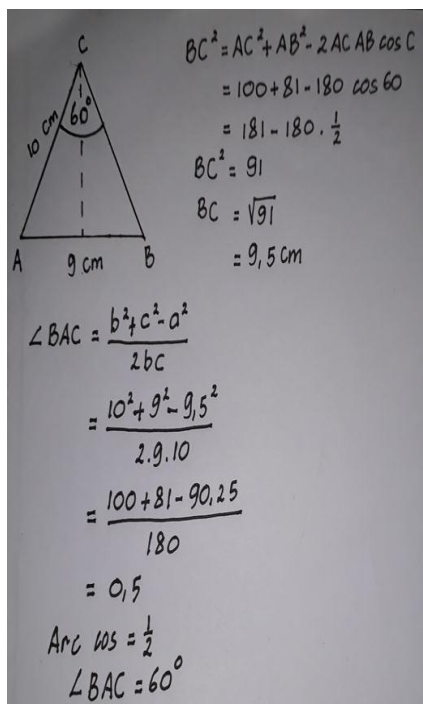 C
10 cm
60°
A
9 cm
B
BC² = AC² + AB² - 2 AC AB cos C
= 100 + 81 - 180 cos 60
= 181 - 180 . 1/2
BC² = 91
BC = √91
= 9,5 cm
∠BAC = b² + c² - a² / 2bc
= 10² + 9² - 9,5² / 2.9.10
= 100 + 81 - 90,25 / 180
= 0,5
Arc cos = 1/2
∠BAC = 60°